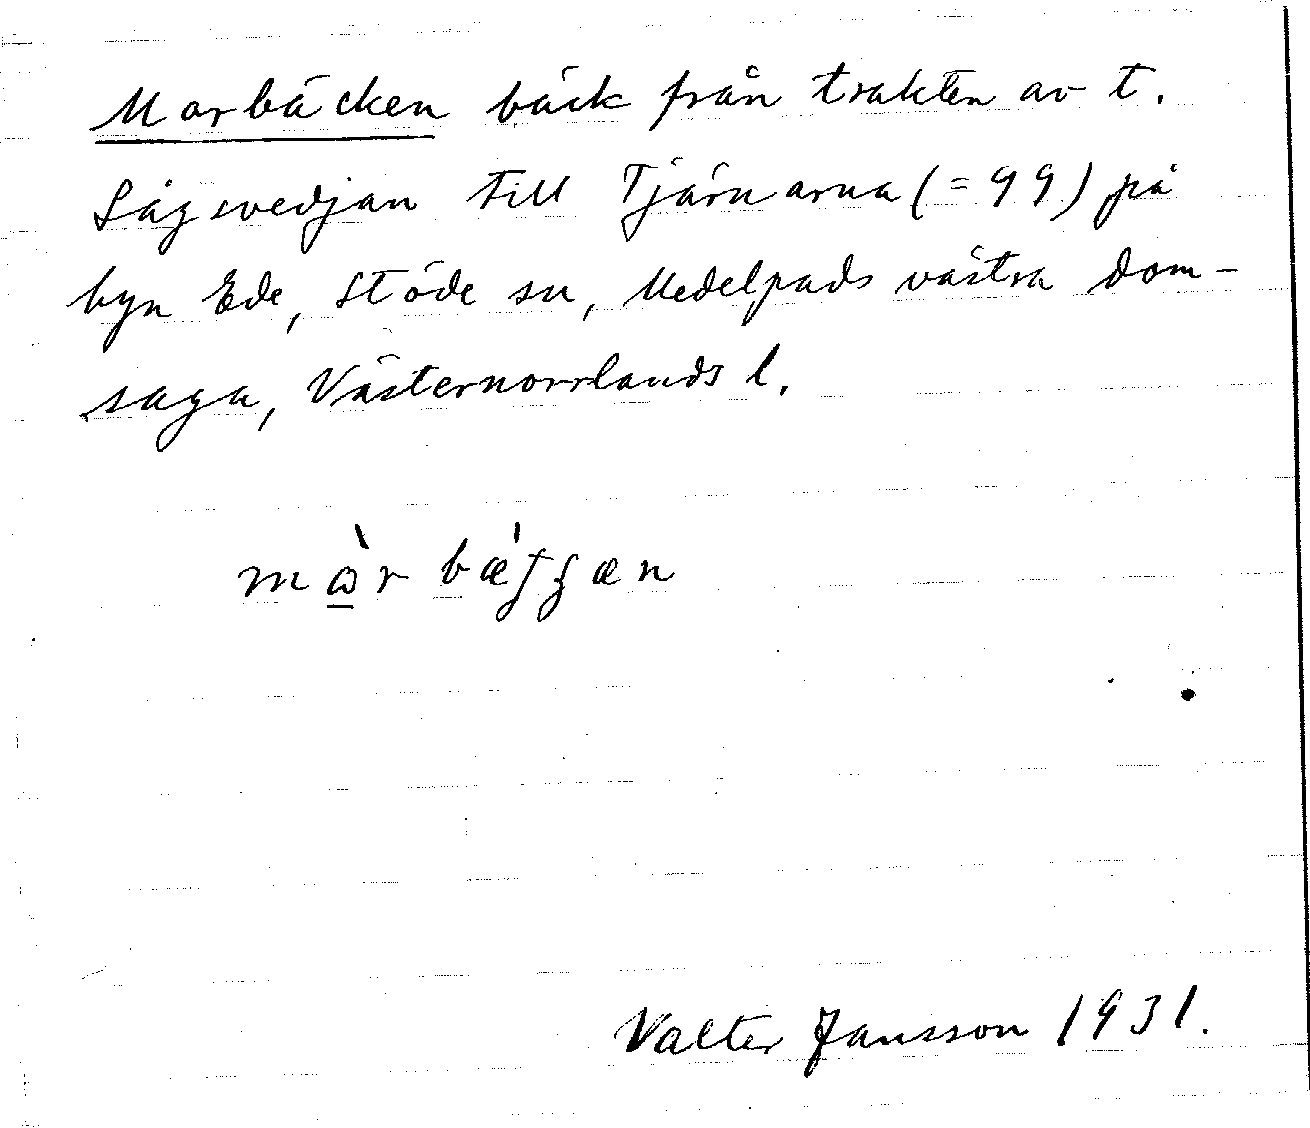 Morbäcken bäck från trakten av t.
Sågsvedjan till Tjärnarna (= 99) på
byn Ede, Stöde sn, Medelpads västra dom-
saga, Västernorrlands l.
Valter Jansson 1931.